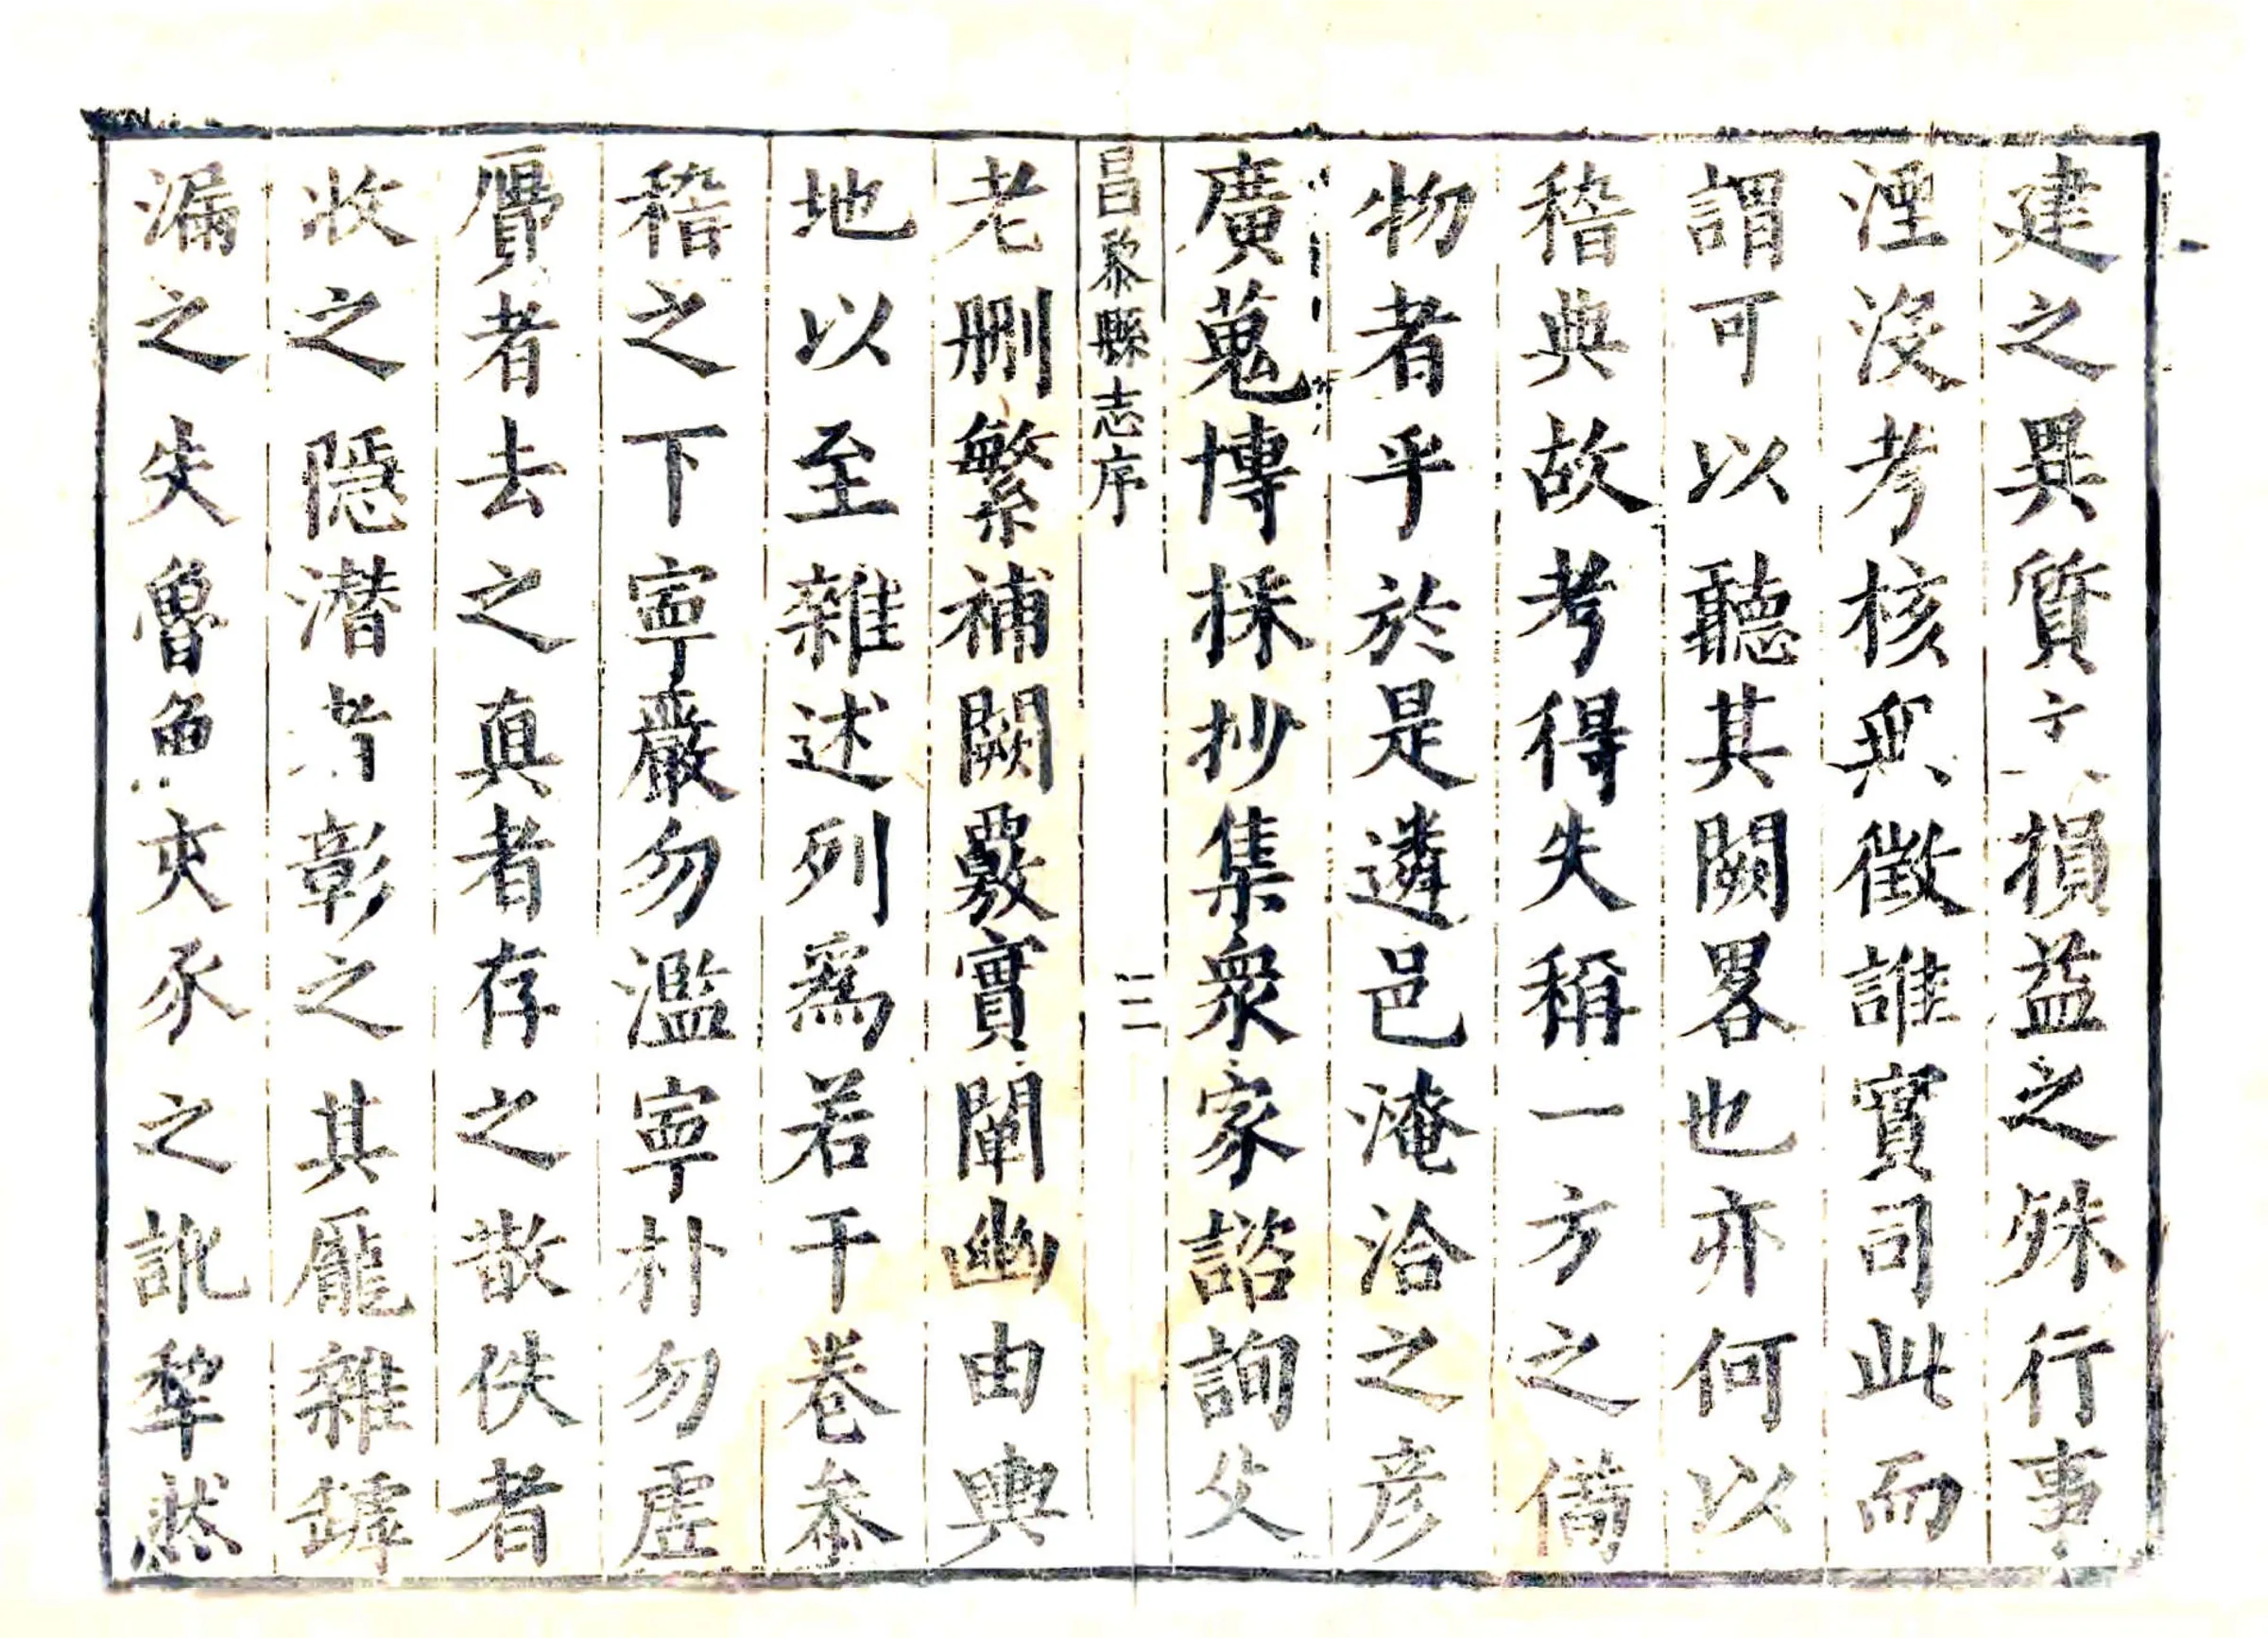 建之異質文損益之殊行事
湮沒考核無徵誰實司此而
謂可以聽其闕畧也亦何以
稽典故考得失稱一方之備
物者乎於是遴邑淹洽之彥
廣蒐博採抄集衆家諮詢父
昌黎縣志序
三
老刪繁補闕覈實闡幽由輿
地以至雜述列爲若干卷叅
稽之下寧嚴勿濫寧朴勿虛
贋者去之真者存之散佚者
收之隱潛者彰之其龎雜罅
漏之失魯魚亥豕之訛犂然